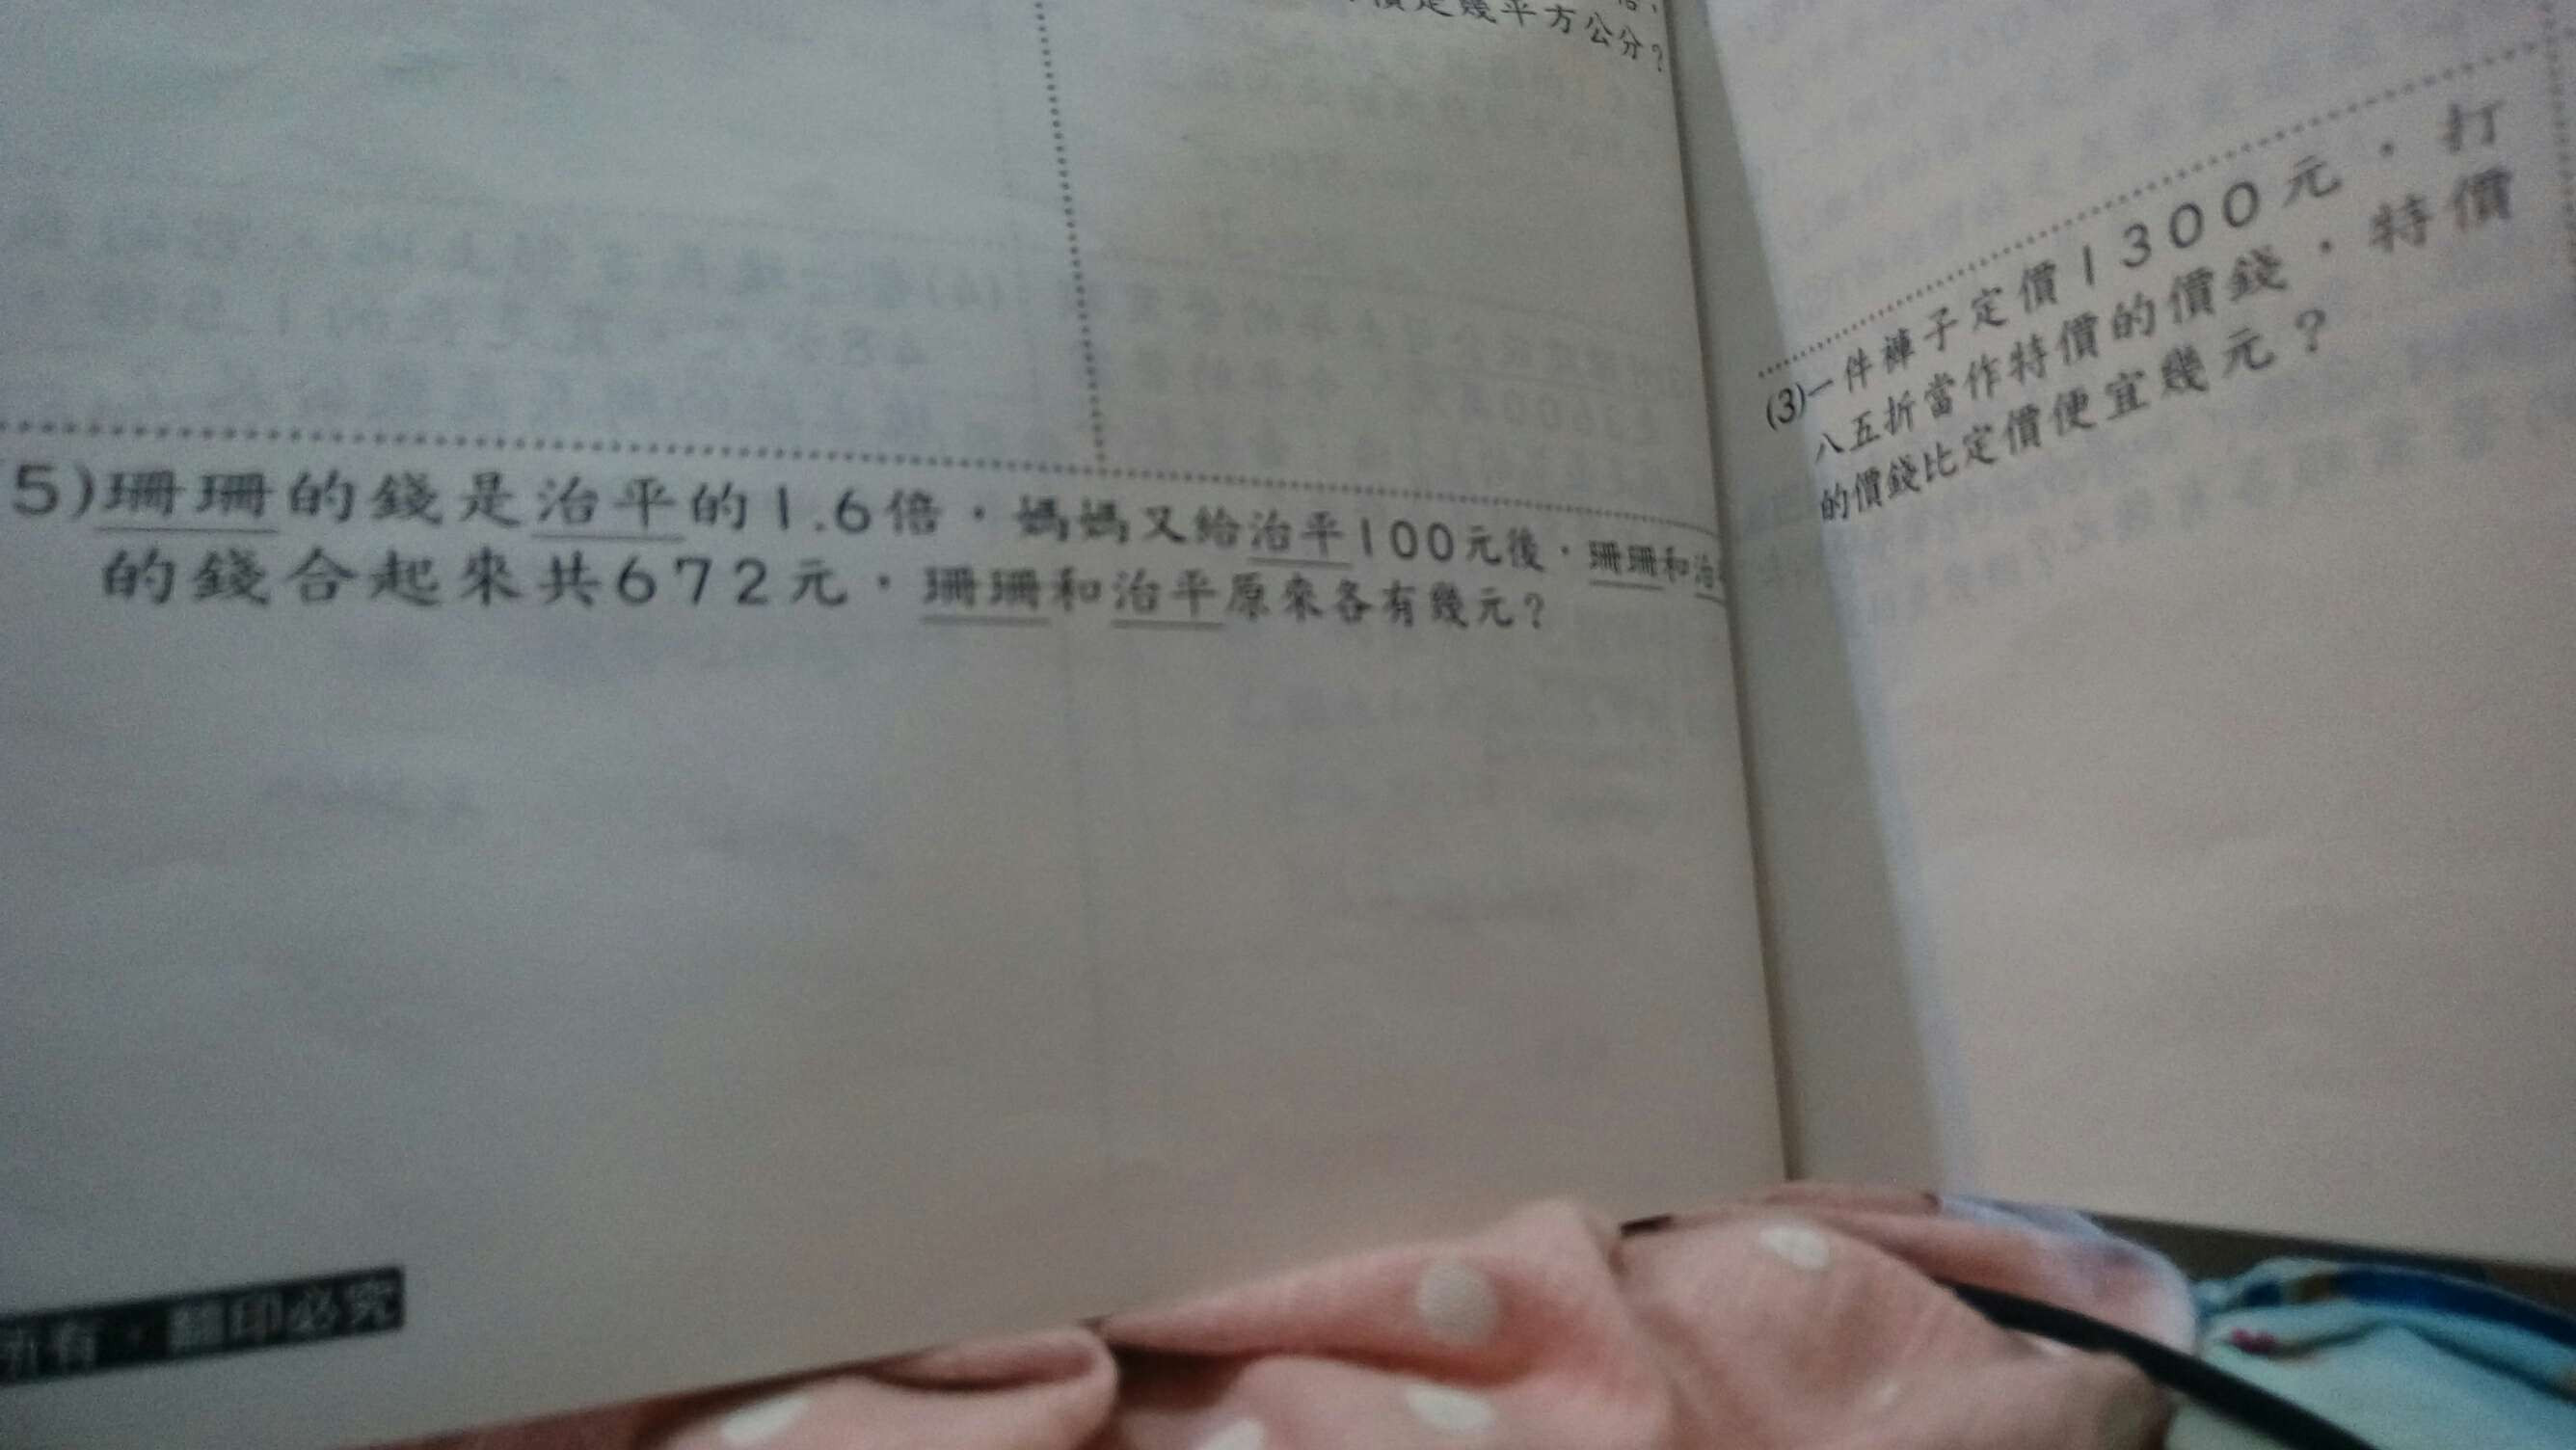 是幾平方公分？
(5)珊珊的錢是治平的1.6倍，媽媽又給治平100元後，珊珊和治
的錢合起來共672元，珊珊和治平原來各有幾元？
有，翻印必究
(3)一件褲子定價1300元，打
八五折當作特價的價錢，特價
的價錢比定價便宜幾元？